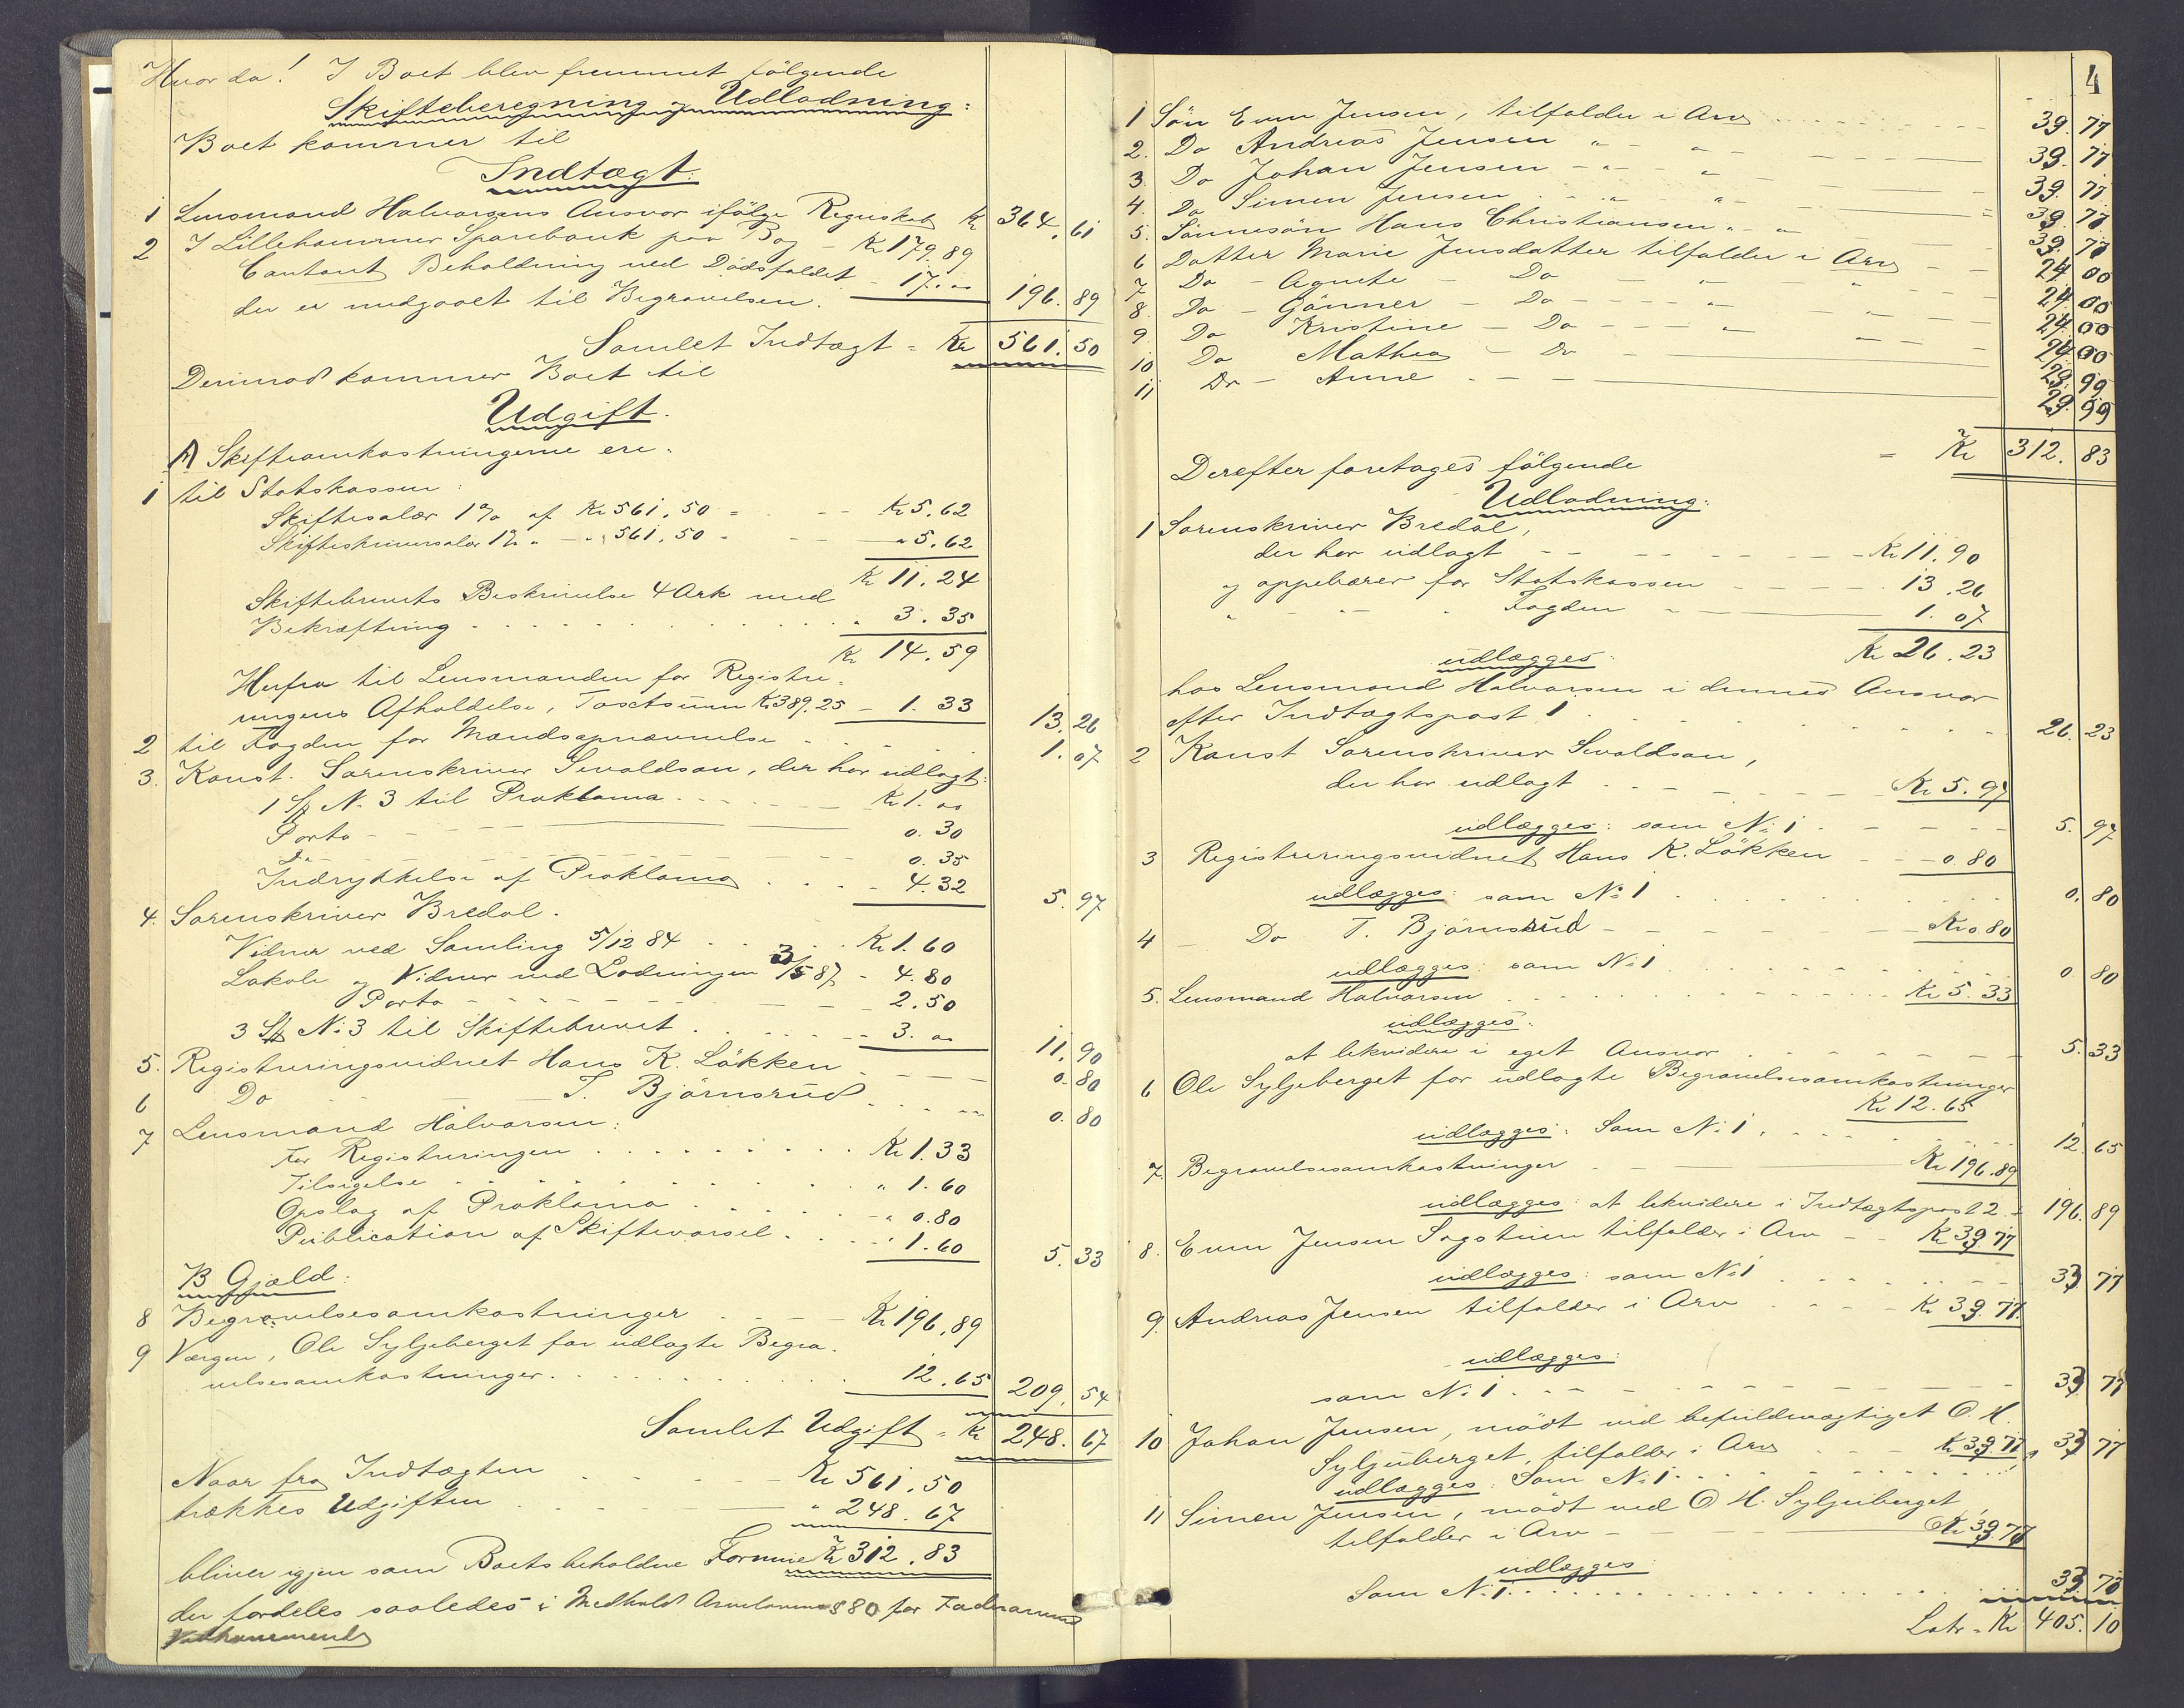 Hvor da! I Boet blev fremmet følgende
Skifteberegning og Udlodning:
Boet kommer til
Indtægt:
1 Lensmand Halvorsens Ansvar ifølge Regnskab Kr 364. 61
2 I Lillehammer Sparebank paa Bog - Kr 179.89
Contant Beholdning ved Dødsfaldet - 17.00
der er medgaaet til Begravelsen. 196. 89
Samlet Indtægt = Kr 561. 50
Derimod kommer Boet til
Udgift.
A Skifteomkostningerne ere:
1 til Statskassen:
Skiftesalær 1% af Kr 561.50 = Kr 5.62
Skifteskriversalær 1% " - " 561.50 - " 5.62
Kr 11.24
Skiftebrevets Beskrivelse 4 Ark med
Bekræftning " 3.35
Kr 14.59
Herfra til Lensmanden for Registre-
ringens Afholdelse, Taxtsum Kr 389.25 - 1.33 13. 26
2 til Fogden for Mandsopnævnelse 1. 07
3. Konst. Sorenskriver Sevaldson, der har udlagt:
1 St N. 3 til Proklama Kr 1.00
Porto 0.30
Do 0.35
Indrykkelse af Proklama - 4.32 5. 97
4. Sorenskriver Bredal.
Vidner ved Samling 5/12 84 Kr 1.60
Lokale og Vidner ved Lodningen 3/5 87 - 4.80
Porto - 2.50
3 St N: 3 til Skiftebrevet - 3.00 11. 90
5. Registreringsvidnet Hans K. Løkken 0. 80
6 Do T. Bjørnsrud 0. 80
7 Lensmand Halvorsen:
For Registreringen Kr 1.33
Tilsigelse " 1.60
Opslag af Proklama " 0.80
Publication af Skiftevarsel " 1.60 5. 33
B Gjæld:
8 Begravelsesomkostninger Kr 196.89
9 Værgen, Ole Syljeberget for udlagte Begra-
velsesomkostninger 12.65 209. 54
Samlet Udgift = Kr 248. 67
Naar fra Indtægten Kr 561.50
trækkes Udgiften " 248.67
bliver igjen som Boets beholdne Formue Kr 312.83
der fordeles saaledes i Medhold Arvelovens § 80 for Fadrearven
4
1 Søn Even Jensen, tilfalder i Arv 39. 77
2. Do Andreas Jensen " - " - 39. 77
3. Do Johan Jensen - " - " 39. 77
4. Do Simen Jensen - " - " - 39. 77
5. Sønnesøn Hans Christiansen " - " 39. 77
6 Datter Marie Jensdatter tilfalder i Arv 24 00
7 Do - Agnete - Do " " 24 00
8. Do - Gønner - Do - - " - " 24 00
9 Do Kristine - Do - - - " 24 00
10 Do Mathea - Do - 23. 99
11 Do - Anne - - - 23. 99
= Kr 312. 83
Derefter foretages følgende
Udlodning:
1 Sorenskriver Bredal,
der har udlagt Kr 11.90
og oppebærer for Statskassen 13.26
" - " - Fogden 1.07
Kr 26.23
udlægges:
hos Lensmand Halvorsen i dennes Ansvar
efter Indtægtspost 1 26. 23
2 Konst Sorenskriver Sevaldson,
der har udlagt Kr 5.97
udlægges: som N: 1 5. 97
3 Registreringsvidnet Hans K. Løkken - 0.80
udlægges: som No 1 0. 80
4 - Do T. Bjørnsrud - Kr 0.80
udlægges: som N: 1 0 80
5. Lensmand Halvorsen Kr 5.33
udlægges:
at likvidere i eget Ansvar 5. 33
6 Ole Syljeberget for udlagte Begravelsesomkostninger
Kr 12.65
udlægges: Som N: 1. 12. 65
7. Begravelsesomkostninger Kr 196.89
udlægges: at likvidere i Indtægtspost 2 196. 89
8. Even Jensen Sagstuen tilfalder i Arv - Kr 39.77
udlægges: som N: 1 39 77
9. Andreas Jensen tilfalder i Arv - Kr 39.77.
udlægges:
som N: 1 39 77
10 Johan Jensen, mødt ved befuldmægtiget O. H.
Syljuberget, tilfalder i Arv Kr 39.77 39 77
udlægges: Som N: 1
11 Simen Jensen, mødt ved O H. Syljuberget,
tilfalder i Arv - Kr 39.77
udlægges
Som N. 1 39. 77
Latr = Kr 405. 10